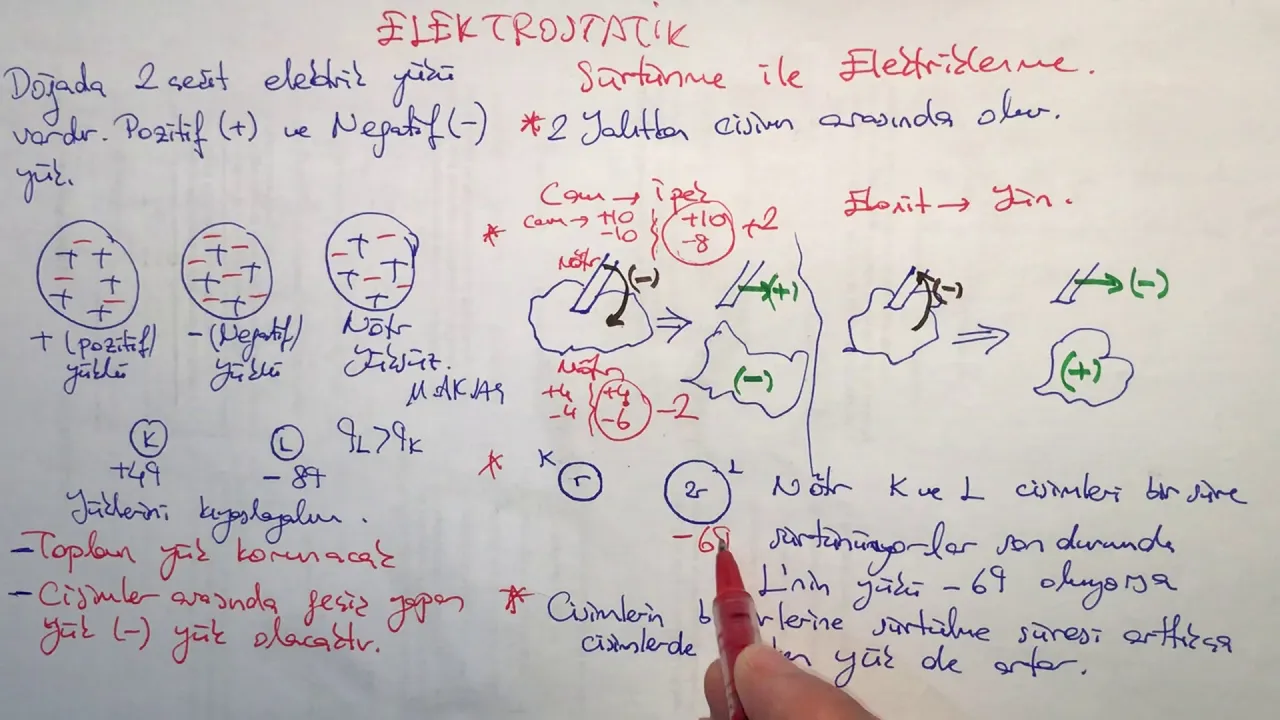 ELEKTROSTATİK
Doğada 2 çeşit elektrik yükü
vardır. Pozitif (+) ve Negatif (-)
yük.
+ (pozitif)
yüklü
- (Negatif)
yüklü
Nötr
Yüksüz.
MAKJAŞ
K
+4q
L
- 8q
qL > qK
Yüklerini kıyaslayalım.
- Toplam yük korunacak
- Cisimler arasında geçiş yapan
yük (-) yük olacaktır.
Sürtünme ile Elektriklenme.
* 2 Yalıtkan cisim arasında olur.
Cam → ipek
* cam → +10
-10
+10
-8
+2
Nötr
(-)
⇒
(+)
(-)
Nötr
+4
-4
+4
-6
-2
Ebonit → Yün.
(-)
⇒
(-)
(+)
* K r
2r L
-6q
Nötr K ve L cisimleri bir süre
sürtünüyorlar son durumda
L'nin yükü -6q oluyorsa
* Cisimlerin sürtülme süresi arttıkça
cisimlerde yük de artar.